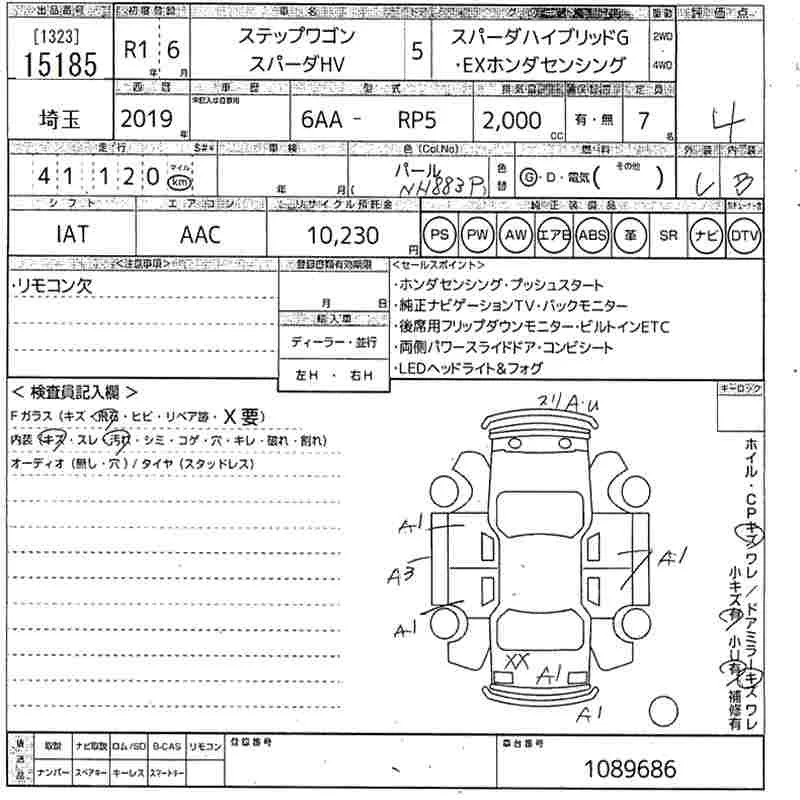 出品番号 初度登録 車名 ドア グレード 駆動 評価点
[1323]
15185
R1 年 6 月
ステップワゴン
スパーダHV
5
スパーダハイブリッドG
・EXホンダセンシング
2WD
4WD
4
西暦 車歴 型式 排気量 定員
埼玉
2019 年
未記入は自家用
6AA - RP5
2,000 CC
有・無
7 名
走行 S#* 車検 色(Col.No) 燃料 外装 内装
41120 マイル km
年 月
パール
(NH883P)
色替
G・D・電気( その他 )
B
シフト エアコン リサイクル預託金 純正装備品
IAT
AAC
10,230 円
PS PW AW エアB ABS 革 SR ナビ DTV
<注意事項> 登録書類有効期限 <セールスポイント>
・リモコン欠
月 日
輸入車
ディーラー・並行
左H ・ 右H
・ホンダセンシング・プッシュスタート
・純正ナビゲーションTV・バックモニター
・後席用フリップダウンモニター・ビルトインETC
・両側パワースライドドア・コンビシート
・LEDヘッドライト&フォグ
< 検査員記入欄 >
キーロック
Fガラス (キズ・飛石・ヒビ・リペア跡・X要)
内装 (キズ・スレ・汚れ・シミ・コゲ・穴・キレ・破れ・割れ)
オーディオ (無し・穴) / タイヤ (スタッドレス)
スリ A・U
A1
A3
A1
A1
XX
A1
A1
ホイル・CPキズワレ/ドアミラーキズワレ
小キズ有 小U有 補修有
後送品
取説 ナビ取説 ロム/SD B-CAS リモコン
ナンバー スペアキー キーレス スマートキー
登録番号
車台番号
1089686